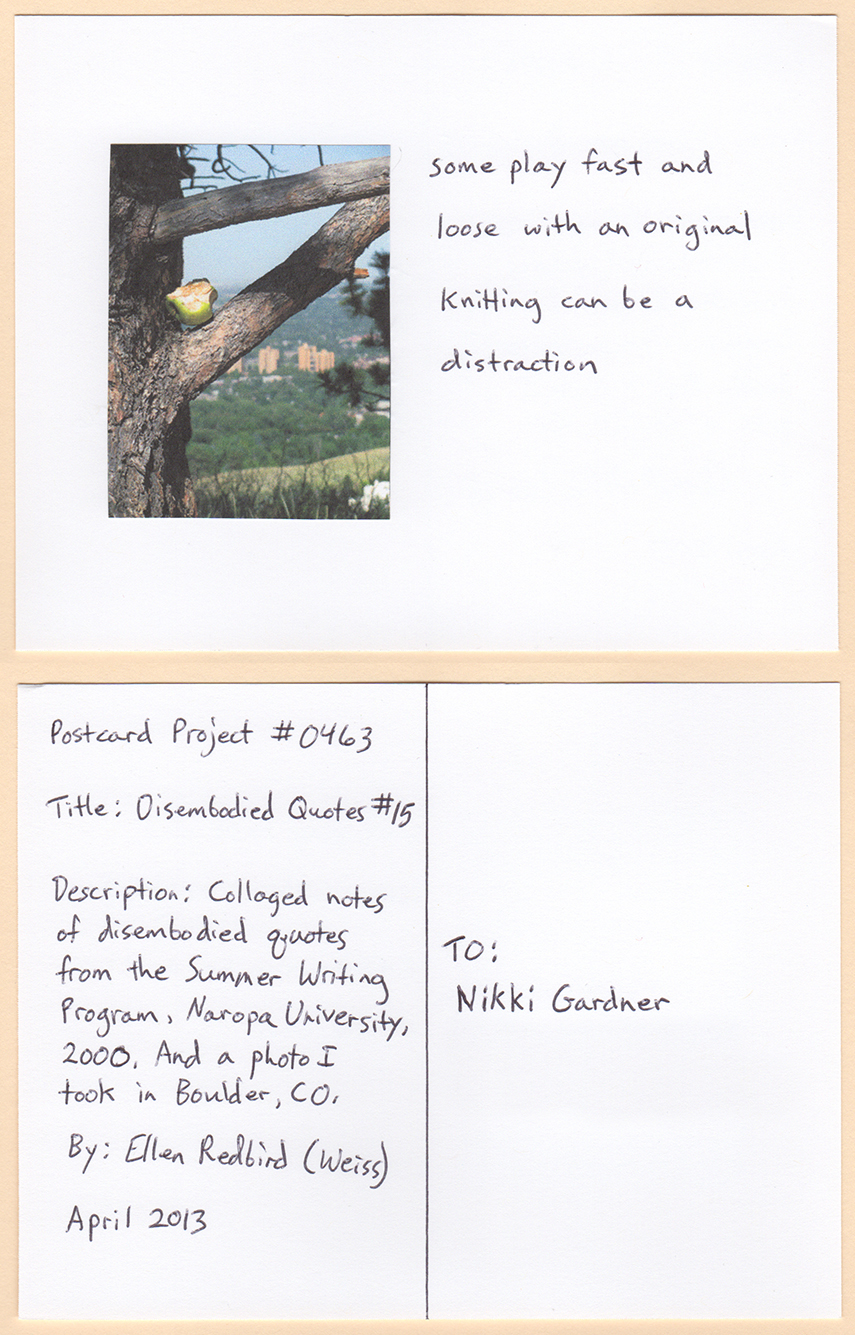 some play fast and
loose with an original
knitting can be a
distraction
Postcard Project #0463
Title: Disembodied Quotes #15
Description: Collaged notes
of disembodied quotes
from the Summer Writing
Program, Naropa University,
2000. And a photo I
took in Boulder, CO.
By: Ellen Redbird (Weiss)
April 2013
TO:
Nikki Gardner